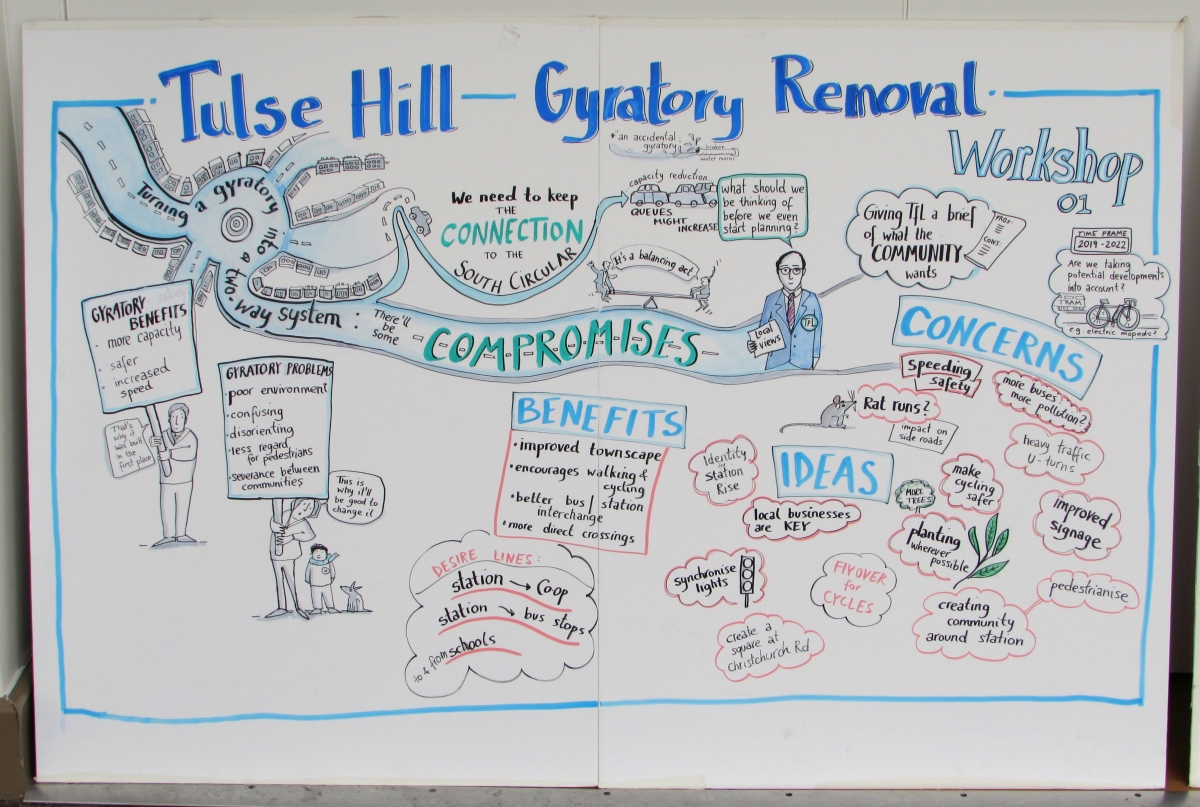 Tulse Hill — Gyratory Removal
Workshop
01
Turning a gyratory into a two-way system:
There'll
be
some
COMPROMISES
We need to keep
THE
CONNECTION
TO THE
SOUTH CIRCULAR
*an accidental
gyratory
broken
water mains
capacity reduction
QUEUES
MIGHT
INCREASE
It's a balancing act!
what should we
be thinking of
before we even
start planning?
local
views
TFL
Giving TfL a brief
of what the
COMMUNITY
wants
PROS
CONS
TIME FRAME
2019-2022
Are we taking
potential developments
into account?
TRAM
e.g electric mopeds?
GYRATORY
BENEFITS
• more capacity
• safer
• increased
speed
That's
why it
was built
in the
first place
GYRATORY PROBLEMS
• poor environment
• confusing
• disorienting
• less regard
for pedestrians
• severance between
communities
This is
why it'll
be good to
change it
BENEFITS
• improved townscape
• encourages walking &
cycling
• better bus/station
interchange
• more direct crossings
DESIRE LINES:
station → Coop
station → bus stops
to & from schools
CONCERNS
speeding
safety
more buses:
more pollution?
Rat runs?
impact on
side roads
heavy traffic
U-turns
IDEAS
Identity
Station
Rise
local businesses
are KEY
MORE
TREES
make
cycling
safer
planting
wherever
possible
improved
signage
synchronise
lights
FLYOVER
for
CYCLES
create a
square at
Christchurch Rd
creating
community
around station
pedestrianise